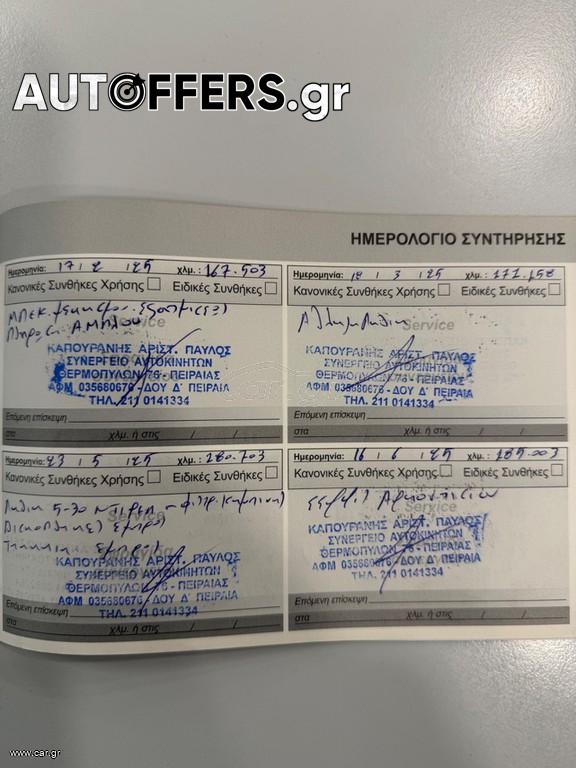 AUTOFFERS.gr
ΗΜΕΡΟΛΟΓΙΟ ΣΥΝΤΗΡΗΣΗΣ
Ημερομηνία: 17 / 2 / 25 χλμ.: 167.503
Κανονικές Συνθήκες Χρήσης Ειδικές Συνθήκες
Service
ΚΑΠΟΥΡΑΝΗΣ ΑΡΙΣΤ. ΠΑΥΛΟΣ
ΣΥΝΕΡΓΕΙΟ ΑΥΤΟΚΙΝΗΤΩΝ
ΘΕΡΜΟΠΥΛΩΝ 76 - ΠΕΙΡΑΙΑΣ
ΑΦΜ 035680676 - ΔΟΥ Δ' ΠΕΙΡΑΙΑ
ΤΗΛ. 211 0141334
Επόμενη επίσκεψη
στα χλμ. ή στις / /
Ημερομηνία: / 3 / 25 χλμ.:
Κανονικές Συνθήκες Χρήσης Ειδικές Συνθήκες
Service
ΚΑΠΟΥΡΑΝΗΣ ΑΡΙΣΤ. ΠΑΥΛΟΣ
ΣΥΝΕΡΓΕΙΟ ΑΥΤΟΚΙΝΗΤΩΝ
ΘΕΡΜΟΠΥΛΩΝ 76 - ΠΕΙΡΑΙΑΣ
ΑΦΜ 035680676 - ΔΟΥ Δ' ΠΕΙΡΑΙΑ
ΤΗΛ. 211 0141334
Επόμενη επίσκεψη
στα χλμ. ή στις / /
Ημερομηνία: 23 / 5 / 25 χλμ.:
Κανονικές Συνθήκες Χρήσης Ειδικές Συνθήκες
5-30
Service
ΚΑΠΟΥΡΑΝΗΣ ΑΡΙΣΤ. ΠΑΥΛΟΣ
ΣΥΝΕΡΓΕΙΟ ΑΥΤΟΚΙΝΗΤΩΝ
ΘΕΡΜΟΠΥΛΩΝ 76 - ΠΕΙΡΑΙΑΣ
ΑΦΜ 035680676 - ΔΟΥ Δ' ΠΕΙΡΑΙΑ
Επόμενη επίσκεψη ΤΗΛ. 211 0141334
στα χλμ. ή στις / /
Ημερομηνία: 16 / 6 / 25 χλμ.: 185.003
Κανονικές Συνθήκες Χρήσης Ειδικές Συνθήκες
Service
ΚΑΠΟΥΡΑΝΗΣ ΑΡΙΣΤ. ΠΑΥΛΟΣ
ΣΥΝΕΡΓΕΙΟ ΑΥΤΟΚΙΝΗΤΩΝ
ΘΕΡΜΟΠΥΛΩΝ 76 - ΠΕΙΡΑΙΑΣ
ΑΦΜ 035680676 - ΔΟΥ Δ' ΠΕΙΡΑΙΑ
ΤΗΛ. 211 0141334
Επόμενη επίσκεψη
στα χλμ. ή στις / /
www.car.gr